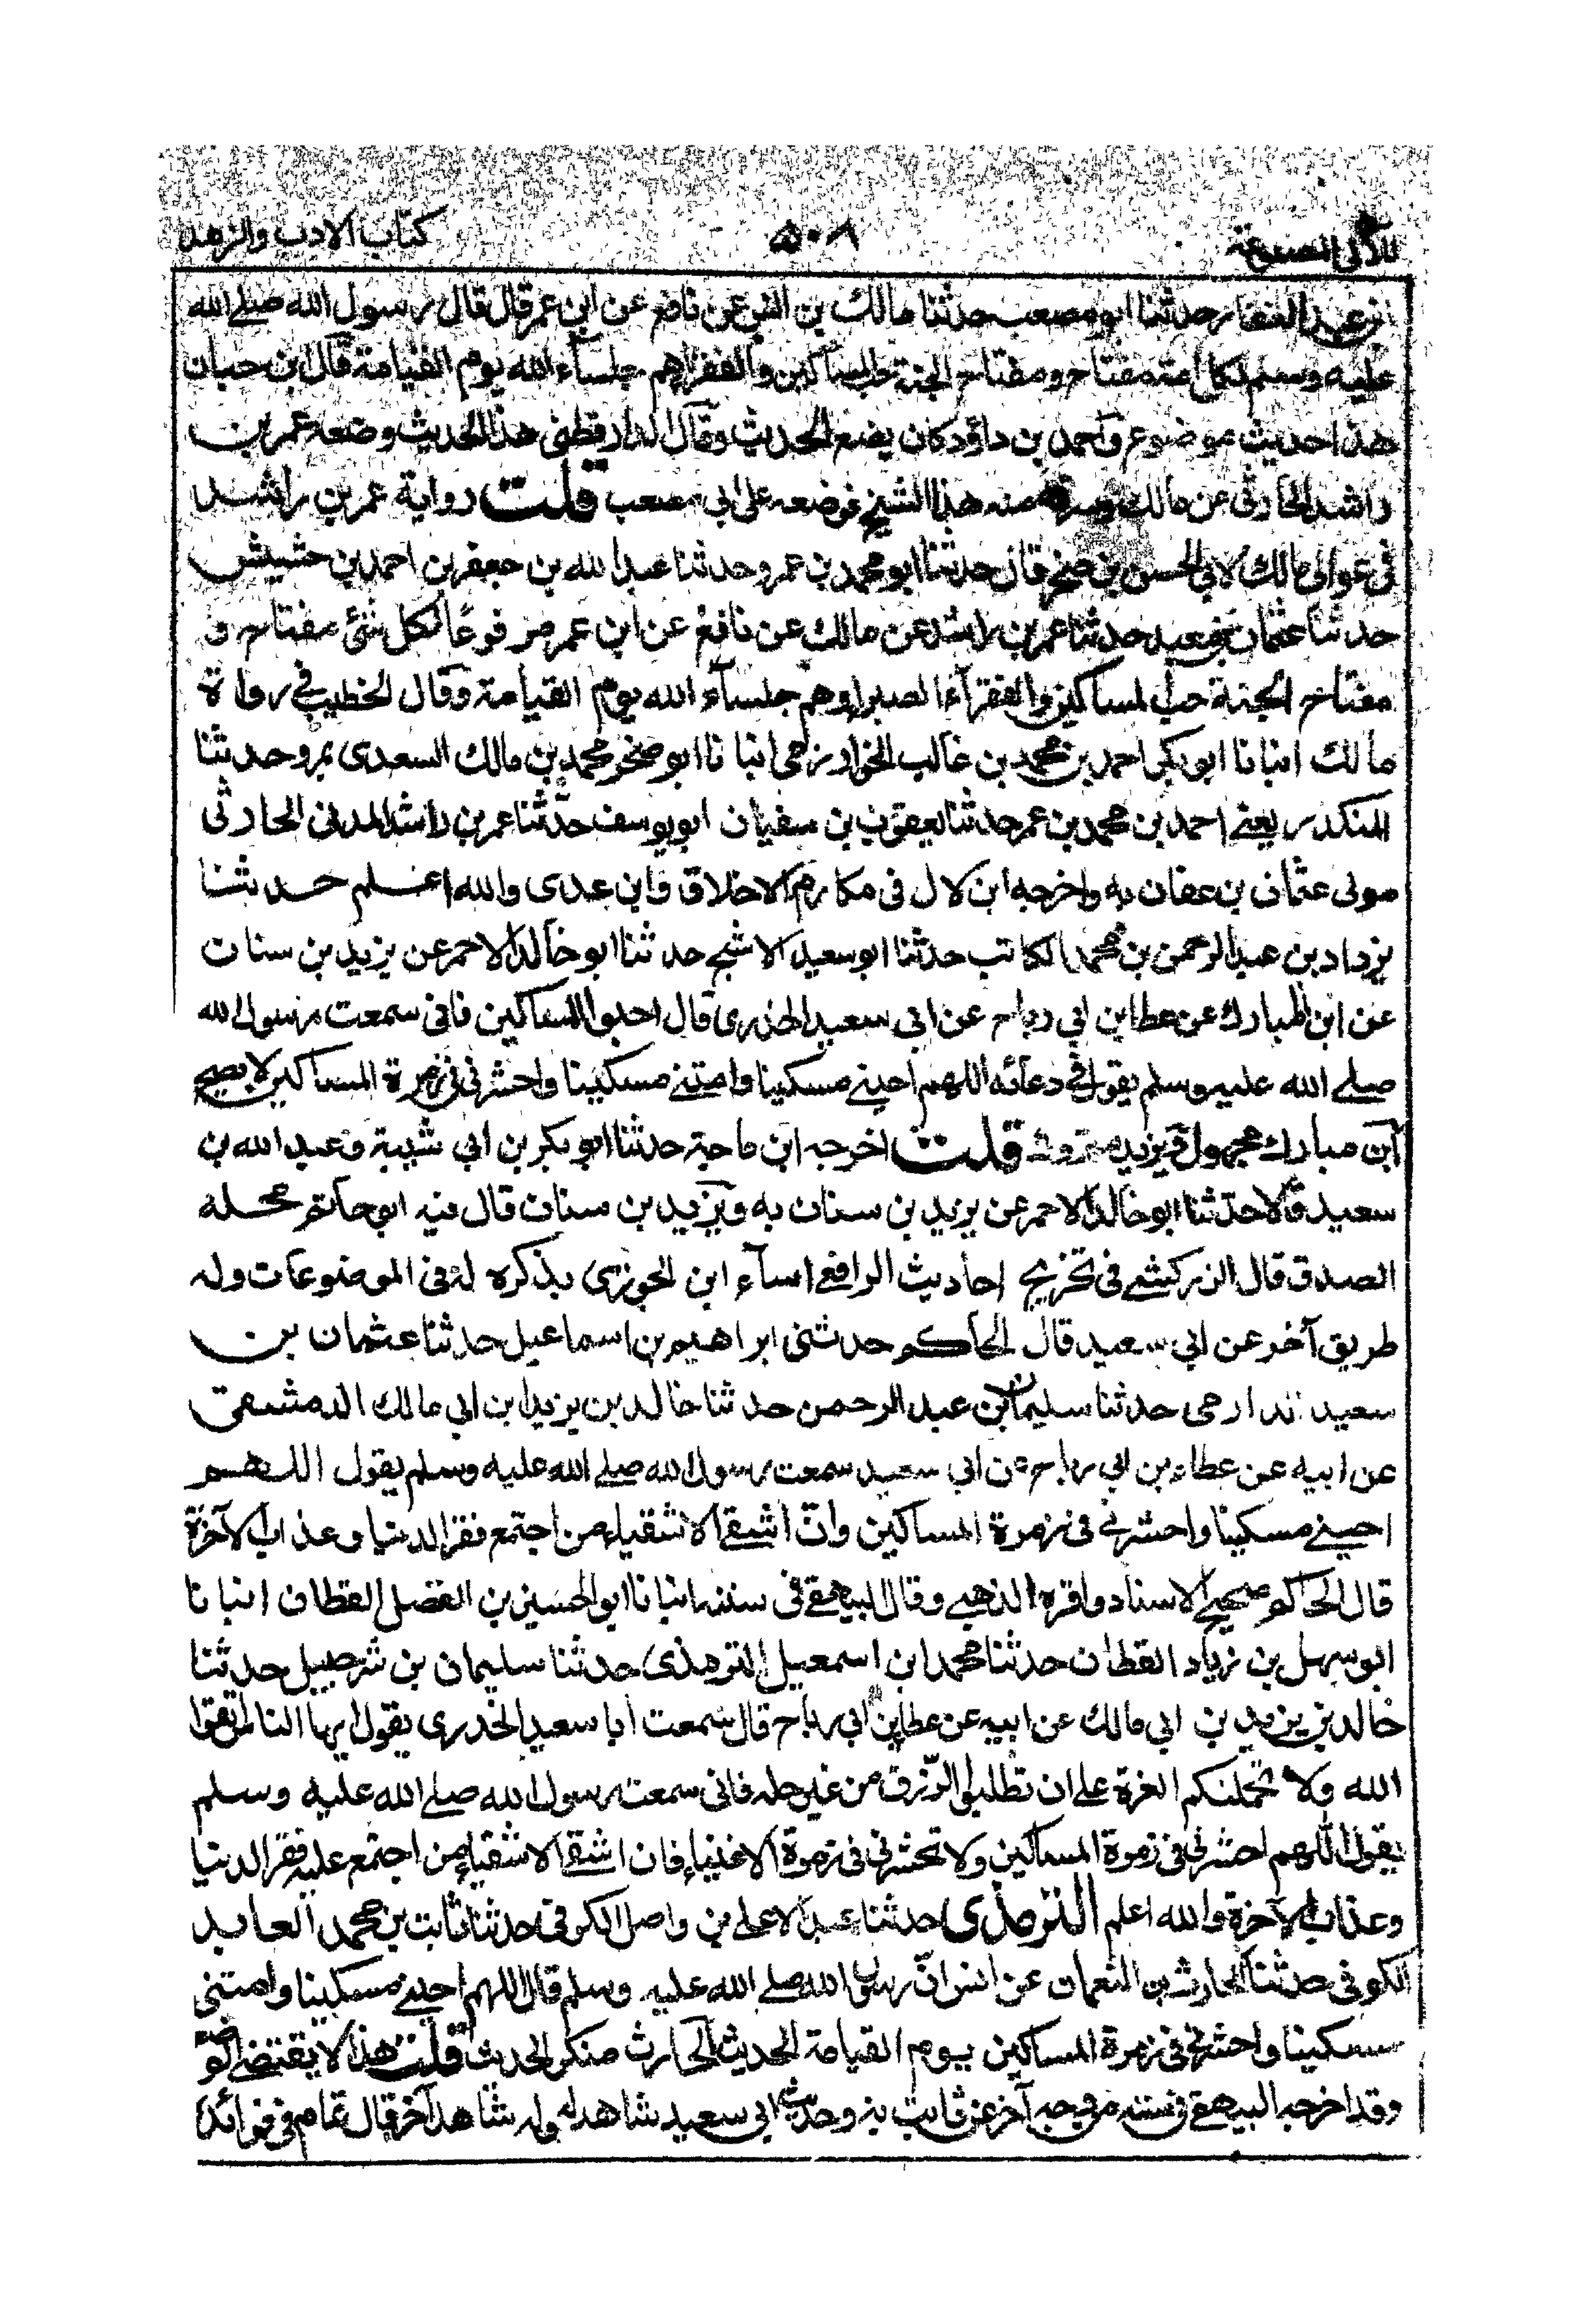 اللآلى المصنوعة ۵۰۸ كتاب الادب والزهد
بن عبد الغفار حدثنا ابو مصعب حدثنا مالك بن انس عن نافع عن ابن عمر قال قال رسول الله صلے الله
عليه وسلم لكل امة مفتاح ومفتاح الجنة حب المساكين والفقراء هم جلساء الله يوم القيامة قال ابن حبان
هذا حديث موضوع واحمد بن داؤد كان يضع الحديث وقال الدارقطنى هذا الحديث وضعه عمر بن
راشد الحارثى عن مالك وسرقه منه هذا الشيخ فوضعه على ابى مصعب قلت رواية عمر بن راشد
فى عوالى مالك لابى الحسن بن صخر قال حدثنا ابو محمد بن عمرو حدثنا عبد الله بن جعفر بن احمد بن حشيش
حدثنا عثمان بن معبد حدثنا عمر بن راشد عن مالك عن نافع عن ابن عمر مرفوعًا لكل شئ مفتاح و
مفتاح الجنة حب المساكين والفقراء الصبر وهم جلساء الله يوم القيامة وقال الخطيب فے رواة
مالك انبانا ابو بكر احمد بن محمد بن غالب الخوارزمى انبانا ابو صخر محمد بن مالك السعدى بمرو حدثنا
المنكدر يعنے احمد بن محمد بن عمر حدثنا يعقوب بن سفيان ابو يوسف حدثنا عمر بن راشد المدنى الحارثى
مولى عثمان بن عفان به واخرجه ابن لال فى مكارم الاخلاق وابن عدى والله اعلم حدثنا
يزداد بن عبد الرحمن بن محمد الكاتب حدثنا ابو سعيد الاشج حدثنا ابو خالد الاحمر عن يزيد بن سنان
عن ابن المبارك عن عطا بن ابي رباح عن ابى سعيد الخدرى قال احبوا المساكين فانى سمعت رسول الله
صلے الله عليه وسلم يقول فے دعائه اللهم احينے مسكينا وامتنے مسكينا واحشرنى فى زمرة المساكين لا يصح
ابن مبارك مجهول ويزيد متروك قلت اخرجه ابن ماجة حدثنا ابو بكر بن ابي شيبة وعبد الله بن
سعيد قالا حدثنا ابو خالد الاحمر عن يزيد بن سنان به ويزيد بن سنان قال فيه ابو حاتم محله
الصدق قال الزركشے فى تخريج احاديث الرافعے اساء ابن الجوزى بذكره له فى الموضوعات وله
طريق آخر عن ابي سعيد قال الحاكم حدثنى ابراهيم بن اسماعيل حدثنا عثمان بن
سعيد الدارمى حدثنا سليمان بن عبد الرحمن حدثنا خالد بن يزيد ابن ابى مالك الدمشقى
عن ابيه عن عطاء بن ابي رباح عن ابي سعيد سمعت رسول الله صلے الله عليه وسلم يقول اللهم
احينے مسكينا واحشرنے فى زمرة المساكين وان اشقے الاشقياء من اجتمع فقر الدنيا وعذاب الآخرة
قال الحاكم صحيح الاسناد واقره الذهبے وقال البيهقے فى سننه انبانا ابو الحسين بن الفضل القطان انبانا
ابو سهل بن زياد القطان حدثنا محمد ابن اسمعيل الترمذى حدثنا سليمان بن شرحبيل حدثنا
خالد بن يزيد بن ابي مالك عن ابيه عن عطا بن ابى رباح قال سمعت ابا سعيد الخدرى يقول ايها الناس اتقوا
الله ولا تحملنكم العزة على ان تطلبوا الرزق من غير حله فانى سمعت رسول الله صلے الله عليه وسلم
يقول اللهم احشرنى فى زمرة المساكين ولا تحشرنى فى زمرة الاغنياء فان اشقے الاشقياء من اجتمع عليه فقر الدنيا
وعذاب الآخرة والله اعلم الترمذى حدثنا عبد الاعلى بن واصل الكوفى حدثنا ثابت بن محمد العابد
الكوفى حدثنا الحارث بن النعمان عن انس ان رسول الله صلے الله عليه وسلم قال اللهم احينے مسكينا وامتنى
مسكينا واحشرنى فى زمرة المساكين يوم القيامة الحديث الحارث منكر الحديث قلت هذا لا يقتضے الوضع
وقد اخرجه البيهقے فى سننه من وجه آخر عن ثابت به وحديث ابى سعيد شاهد له وله شاهد آخر قال تمام فى فوائده